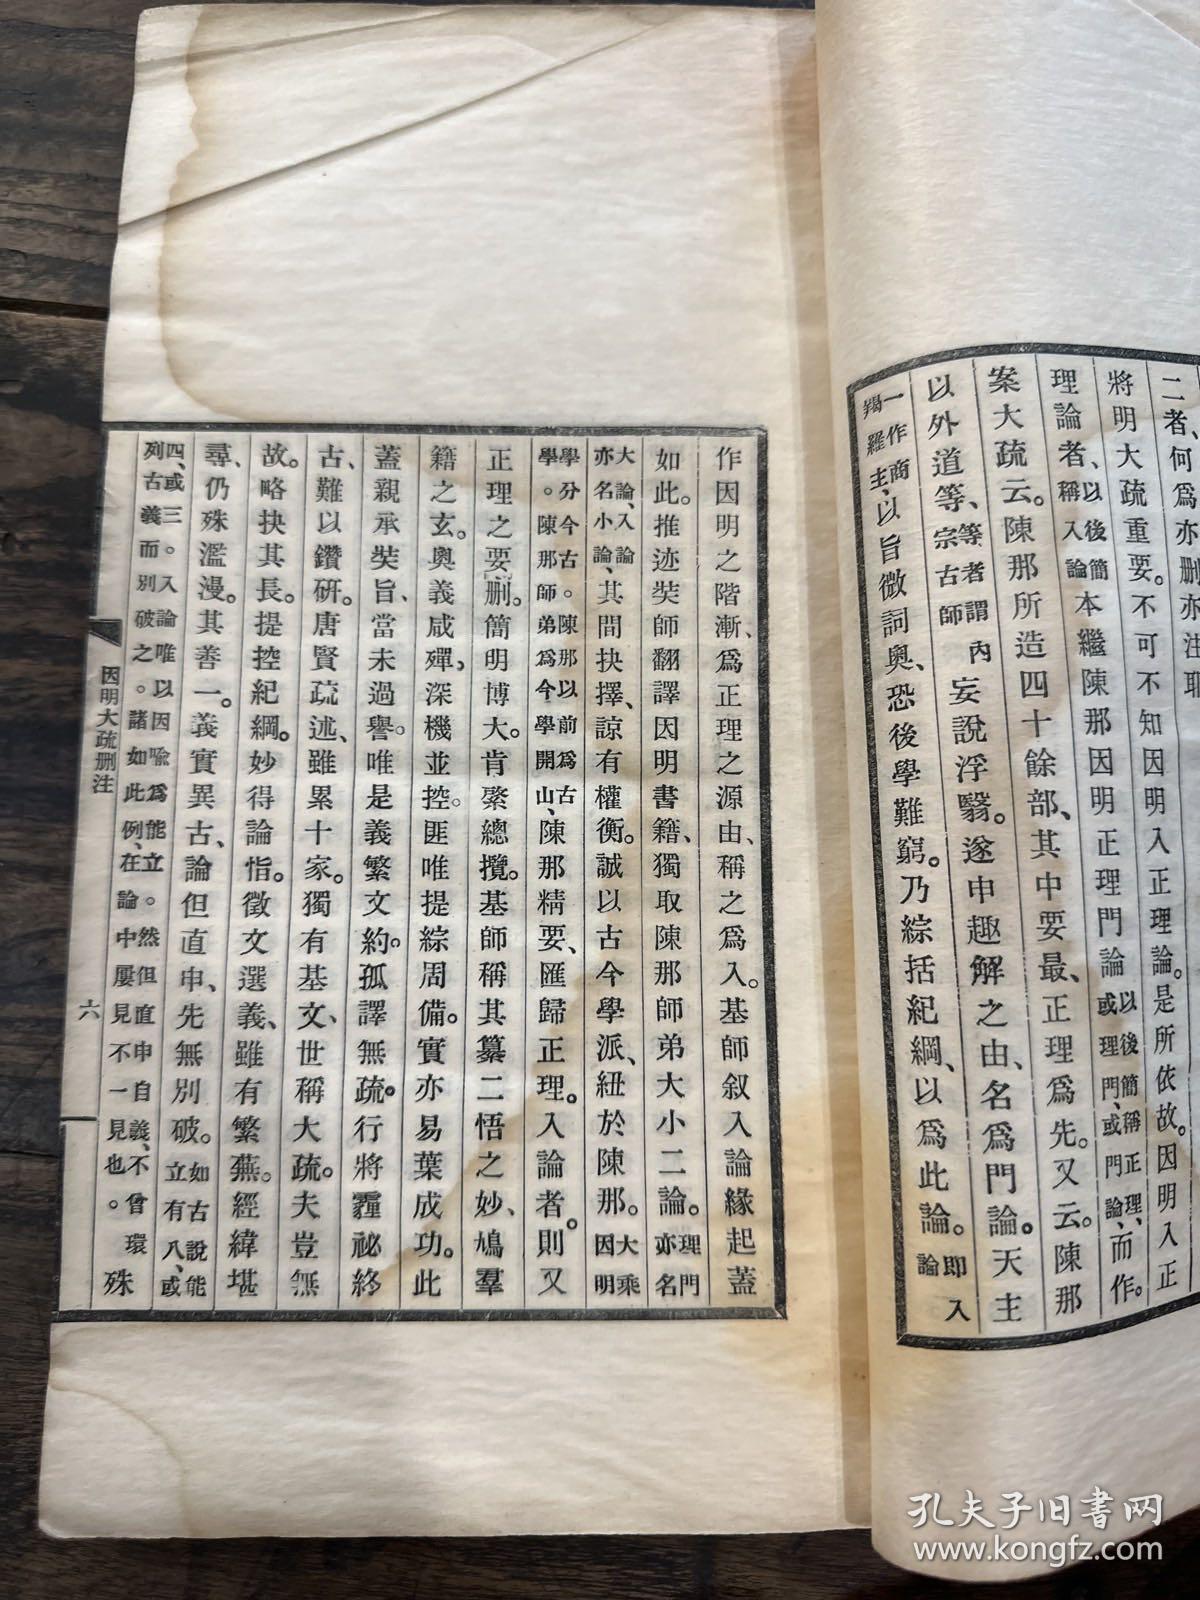 二者、何爲亦删亦注耶
將明大疏重要。不可不知因明入正理論。是所依故。因明入正
理論者、以後簡稱入論本繼陳那因明正理門論以後簡稱正理、或理門、或門論、而作。
案大疏云。陳那所造四十餘部、其中要最、正理爲先。又云。陳那
以外道等、等者謂內宗古師妄說浮翳。遂申趣解之由、名爲門論。天主
一作商羯羅主、以旨微詞奧、恐後學難窮。乃綜括紀綱、以爲此論。即入論
作因明之階漸、爲正理之源由、稱之爲入。基師叙入論緣起蓋
如此。推迹奘師翻譯因明書籍、獨取陳那師弟大小二論。理門亦名
大論、入論亦名小論、其間抉擇、諒有權衡。誠以古今學派、紐於陳那。大乘因明
學分今古。陳那以前爲古學。陳那師弟爲今學開山、陳那精要、匯歸正理。入論者。則又
正理之要删。簡明博大。肯綮總攬。基師稱其纂二悟之妙、鳩羣
籍之玄。奧義咸殫、深機並控。匪唯提綜周備。實亦易葉成功。此
蓋親承奘旨、當未過譽。唯是義繁文約。孤譯無疏。行將霾祕終
古、難以鑽研。唐賢疏述、雖累十家。獨有基文、世稱大疏。夫豈無
故。略抉其長。提控紀綱。妙得論恉。徵文選義、雖有繁蕪。經緯堪
尋、仍殊濫漫。其善一。義實異古、論但直申、先無別破。如古說能立有八、或
四、或三。入論唯以因喩爲能立。然但直申自義、不曾環列古義而別破之。諸如此例、在論中屢見不一見也。殊
因明大疏删注
六
孔夫子旧书网
www.kongfz.com